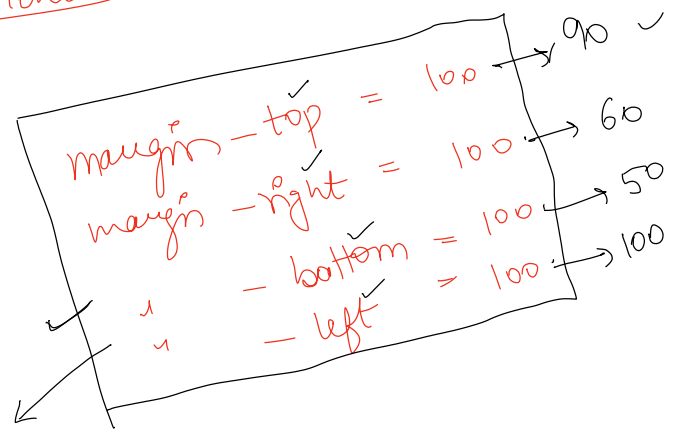 margin - top = 100 → 90 ✓
margin - right = 100 → 60
" - bottom = 100 → 50
" - left = 100 → 100